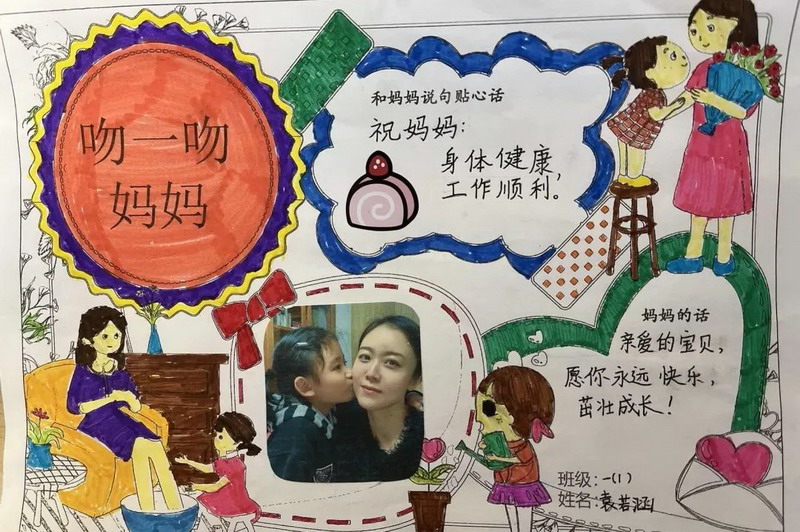 吻一吻
妈妈
和妈妈说句贴心话
祝妈妈:
身体健康,
工作顺利!
妈妈的话
亲爱的宝贝,
愿你永远快乐,
茁壮成长!
班级:一(1)
姓名:袁若涵